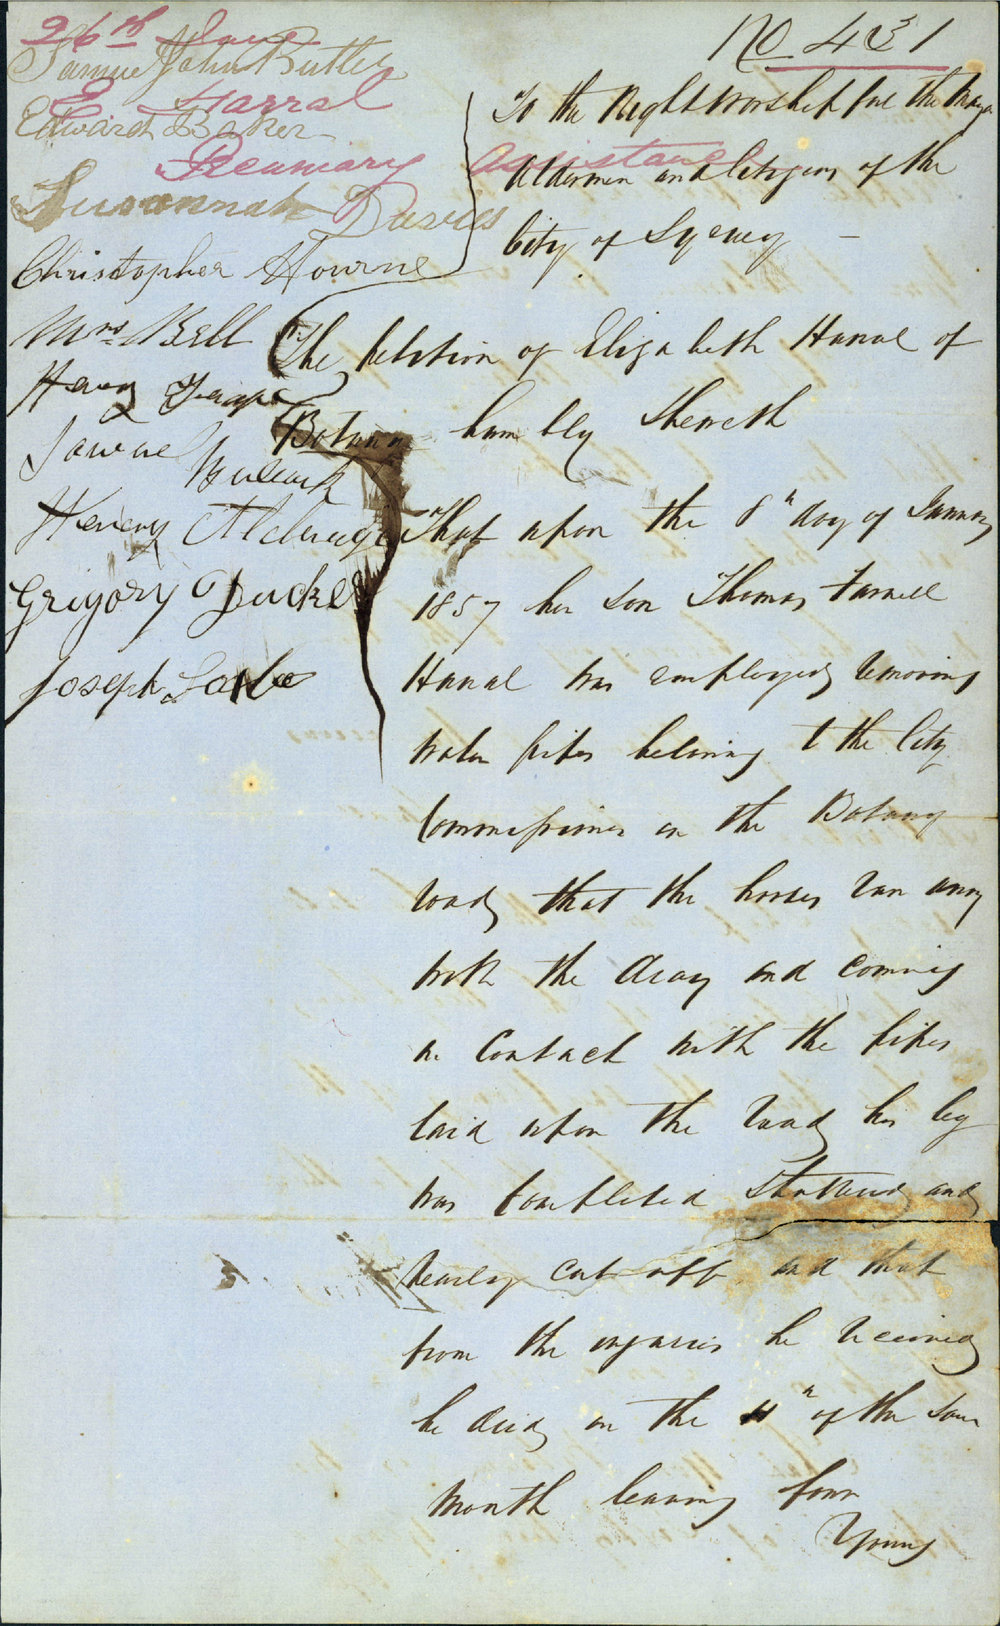 No 431
26th June
Samuel John Butler
E Harral
Edward Baker
Pecuniary assistance
Susannah Davies
Christopher Hourne
Mrs Bell
Henry
Bullock
Henery
Grigory Ducker
Joseph
To the Right Worshipful the Mayor
Aldermen and Citizens of the
City of Sydney
The petition of Elizabeth Harral of
Botany humbly Sheweth
That upon the 8th day of January
1857 her son Thomas Farrell
Harral was employed removing
water pipes beloning to the City
Commissioners on the Botany
road that the horses ran away
with the dray and coming
in Contact with the pipes
laid upon the road his leg
was completed shattered and
nearly cut off and that
from the injuries he received
he died on the 11th of the same
month leaving four
Young